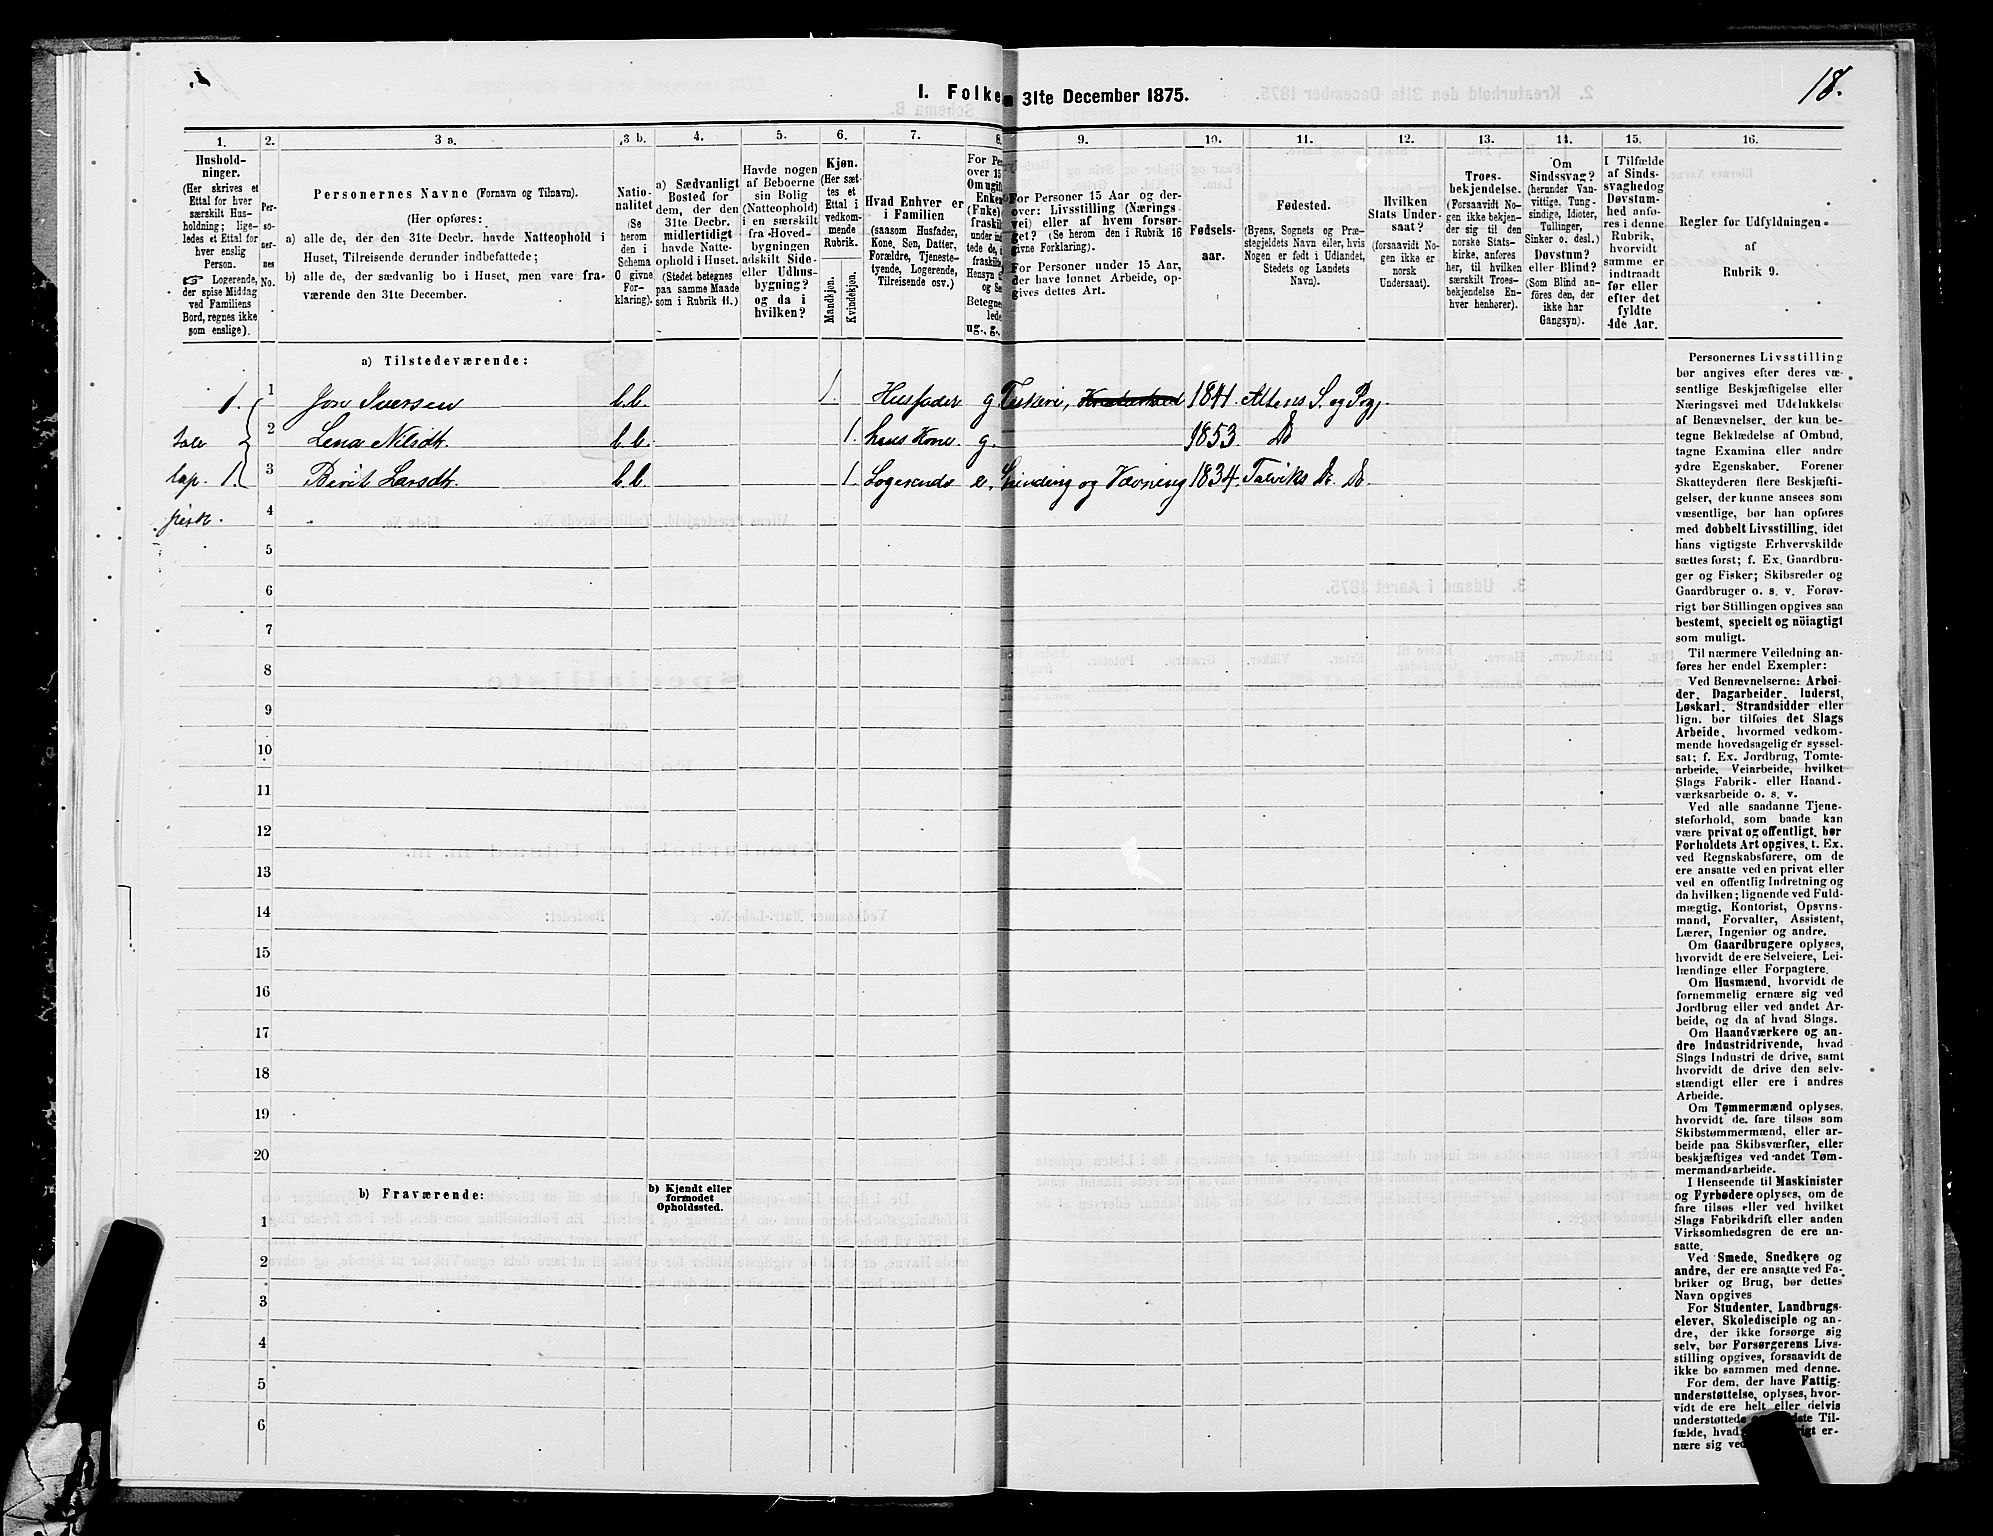 18.
I. Folke 31te December 1875.
1. 2. 3 a. 3 b. 4. 5. 6. 7. 8. 9. 10. 11. 12. 13. 14. 15. 16.
Hushold-
ninger.
(Her skrives et
Ettal for hver
særskilt Hus-
holdning; lige-
ledes et Ettal for
hver enslig
Person.
☞ Logerende,
der spise Middag
ved Familiens
Bord, regnes ikke
som enslige).
Per-
so-
ner-
nes
No.
Personernes Navne (Fornavn og Tilnavn).
(Her opføres:
a) alle de, der den 31te Decbr. havde Natteophold i
Huset, Tilreisende derunder indbefattede;
b) alle de, der sædvanlig bo i Huset, men vare fra-
værende den 31te December.
Natio-
nalitet
(Se
herom
den i
Schema
O givne
For-
klaring).
a) Sædvanligt
Bosted for
dem, der den
31te Decbr.
midlertidigt
havde Natte-
ophold i Huset.
(Stedet betegnes
paa samme Maade
som i Rubrik 11.)
Havde nogen
af Beboerne
sin Bolig
(Natteophold)
i en særskilt
fra Hoved-
bygningen
adskilt Side-
eller Udhus-
bygning?
og da i
hvilken?
Kjøn.
(Her sæt-
tes et
Ettal i
vedkom-
mende
Rubrik.
Mandkjøn.
Kvindekjøn.
Hvad Enhver er
i Familien
(saasom Husfader,
Kone, Søn, Datter,
Forældre, Tjeneste-
tyende, Logerende,
Tilreisende osv.)
For Pe
over 15
Om ugift
Enke
(Fnke)
fraskil
under ind
tede de, i
fraskille
Hensyn t
og Se
Betegne
lede
ug., g.,
For Personer 15 Aar og der-
over: Livsstilling (Nærings
vei) eller af hvem forsør-
get? (Se herom den i Rubrik 16
givne Forklaring).
For Personer under 15 Aar,
der have lønnet Arbeide, op-
gives dettes Art.
Fødsels-
aar.
Fødested.
(Byens, Sognets og Præ-
stegjeldets Navn eller, hvis
Nogen er født i Udlandet,
Stedets og Landets
Navn).
Hvilken
Stats Under-
saat?
(forsaavidt No-
gen ikke er
norsk
Undersaat).
Troes-
bekjendelse.
(Forsaavidt No-
gen ikke bekjen-
der sig til den
norske Stats-
kirke, anføres
her, til hvilken
særskilt Troes-
bekjendelse En-
hver henhører).
Om
Sindssvag?
(herunder Van-
vittige, Tung-
sindige, Idioter,
Tullinger,
Sinker o. desl.)
Døvstum?
eller Blind?
(Som Blind an-
føres den, der
ikke har
Gangsyn).
I Tilfælde
af Sinds-
svaghedog
Døvstum-
hed anfø-
res i denne
Rubrik,
hvorvidt
samme er
indtraadt
før eller
efter det
fyldte
4de Aar.
Regler for Udfyldningen
af
Rubrik 9.
a) Tilstedeværende:
1. 1 Jon Iversen b.b. 1. Husfader g 1841. Altens S. og Pg.
2 Lena Nilsdt. b.b. 1. hans Kone g. 1853. Do
1. 3 Berit Larsdt. b.b. 1. Logerende e. Spinding og Vævning 1834. Talviks Do. Do.
4
5
6
7
8
9
10
11
12
13
14
15
16
17
18
19
20
b) Fraværende:
b) Kjendt eller
formodet
Opholdssted.
1
2
3
4
5
6
Personernes Livsstilling
bør angives efter deres væ-
sentlige Beskjæftigelse eller
Næringsvei med Udelukkelse
af Benævnelser, der kun be-
tegne Beklædelse af Ombud,
tagne Examina eller andre
ydre Egenskaber. Forener
Skatteyderen flere Beskjæfti-
gelser, der kunne ansees som
væsentlige, bør han opføres
med dobbelt Livsstilling, idet
hans vigtigste Erhvervskilde
sættes først; f. Ex. Gaardbru-
ger og Fisker; Skibsreder og
Gaardbruger o. s. v. Forøv-
rigt bør Stillingen opgives saa
bestemt, specielt og nöiagtigt
som muligt.
Til nærmere Veiledning an-
føres her endel Exempler:
Ved Benævnelserne: Arbei-
der, Dagarbeider, Inderst,
Løskarl, Strandsidder eller
lign. bør tilføies det Slags
Arbeide, hvormed vedkom-
mende hovedsagelig er syssel-
sat; f. Ex. Jordbrug, Tomte-
arbeide, Veiarbeide, hvilket
Slags Fabrik- eller Haand-
værksarbeide o. s. v.
Ved alle saadanne Tjene-
steforhold, som baade kan
være privat og offentligt, bør
Forholdets Art opgives, t. Ex.
ved Regnskabsførere, om de
ere ansatte ved en privat eller
ved en offentlig Indretning og
da hvilken; lignende ved Fuld-
mægtig, Kontorist, Opsyns-
mand, Forvalter, Assistent,
Lærer, Ingeniør og andre.
Om Gaardbrugere oplyses,
hvorvidt de ere Selveiere, Lei-
lændinge eller Forpagtere.
Om Husmænd, hvorvidt de
fornemmelig ernære sig ved
Jordbrug eller ved andet Ar-
beide, og da af hvad Slags.
Om Haandværkere og an-
dre Industridrivende, hvad
Slags Industri de drive, samt
hvorvidt de drive den selv-
stændigt eller ere i andres
Arbeide.
Om Tømmermænd oplyses,
hvorvidt de fare tilsøs som
Skibstømmermænd, eller ar-
beide paa Skibsværfter, eller
beskjæftiges ved andet Tøm-
mermandsarbeide.
I Henseende til Maskinister
og Fyrbødere oplyses, om de
fare tilsøs eller ved hvilket
Slags Fabrikdrift eller anden
Virksomhedsgren de ere an-
satte.
Ved Smede, Snedkere og
andre, der ere ansatte ved Fa-
briker og Brug, bør dettes
Navn opgives
For Studenter, Landbrugs-
elever, Skoledisciple og an-
dre, der ikke forsørge sig
selv, bør Forsørgerens Livs-
stilling opgives, forsaavidt de
ikke bo sammen med denne.
For dem, der have Fattig-
understøttelse, oplyses, hvor-
vidt de ere helt eller delvis
understøttede
fælde, hvad
nære sig ved